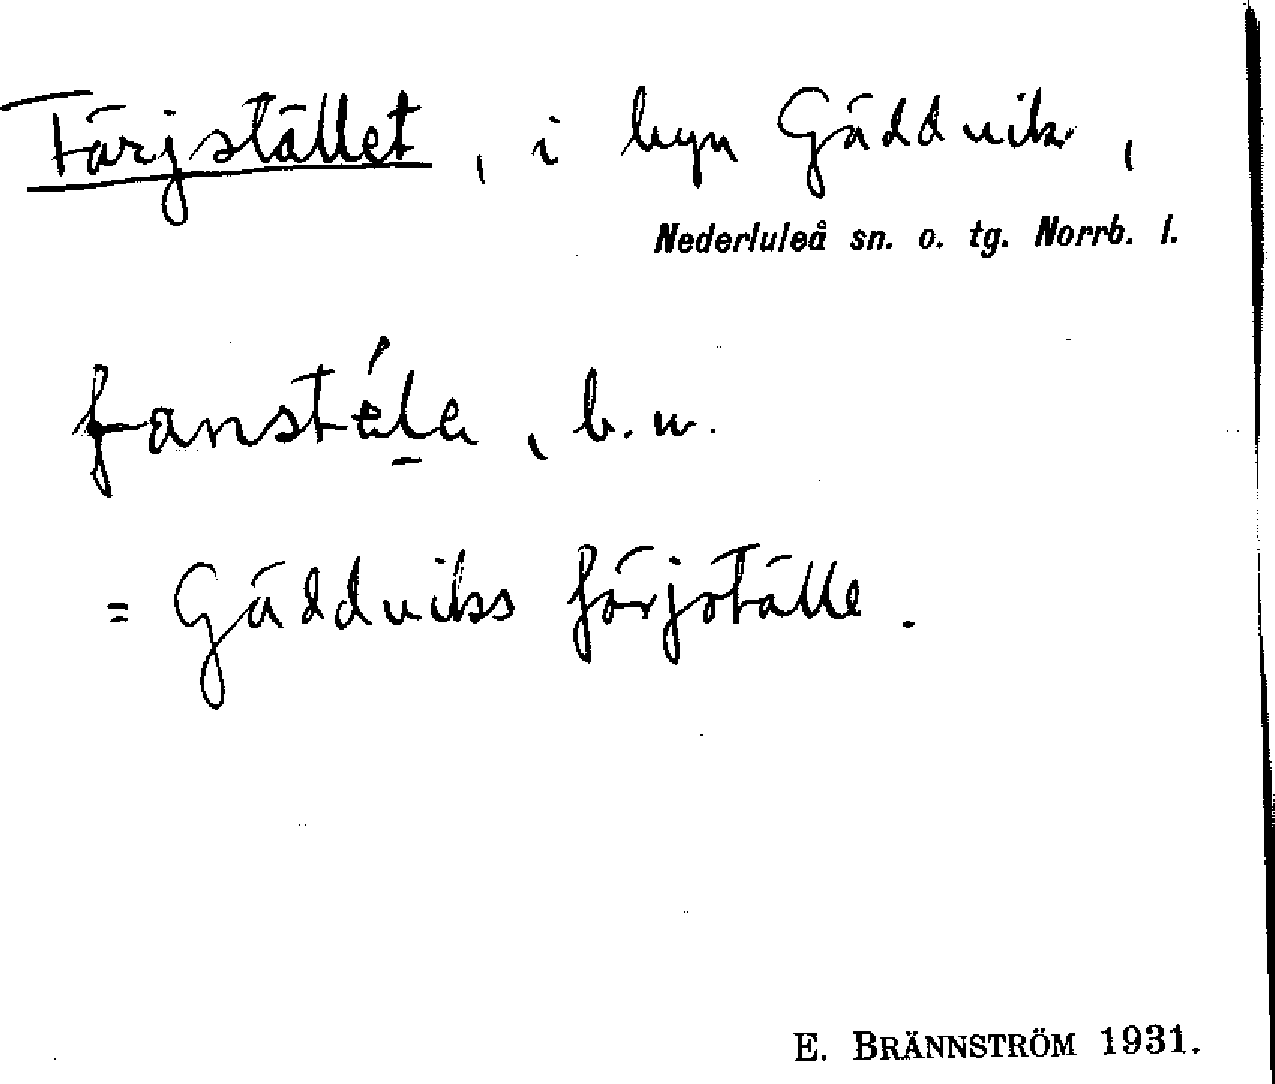 Färjstället, i byn Gäddvik,
Nederluleå sn. o. tg. Norrb. l.
, b. u.
= Gäddviks färjställe.
E. BRÄNNSTRÖM 1931.